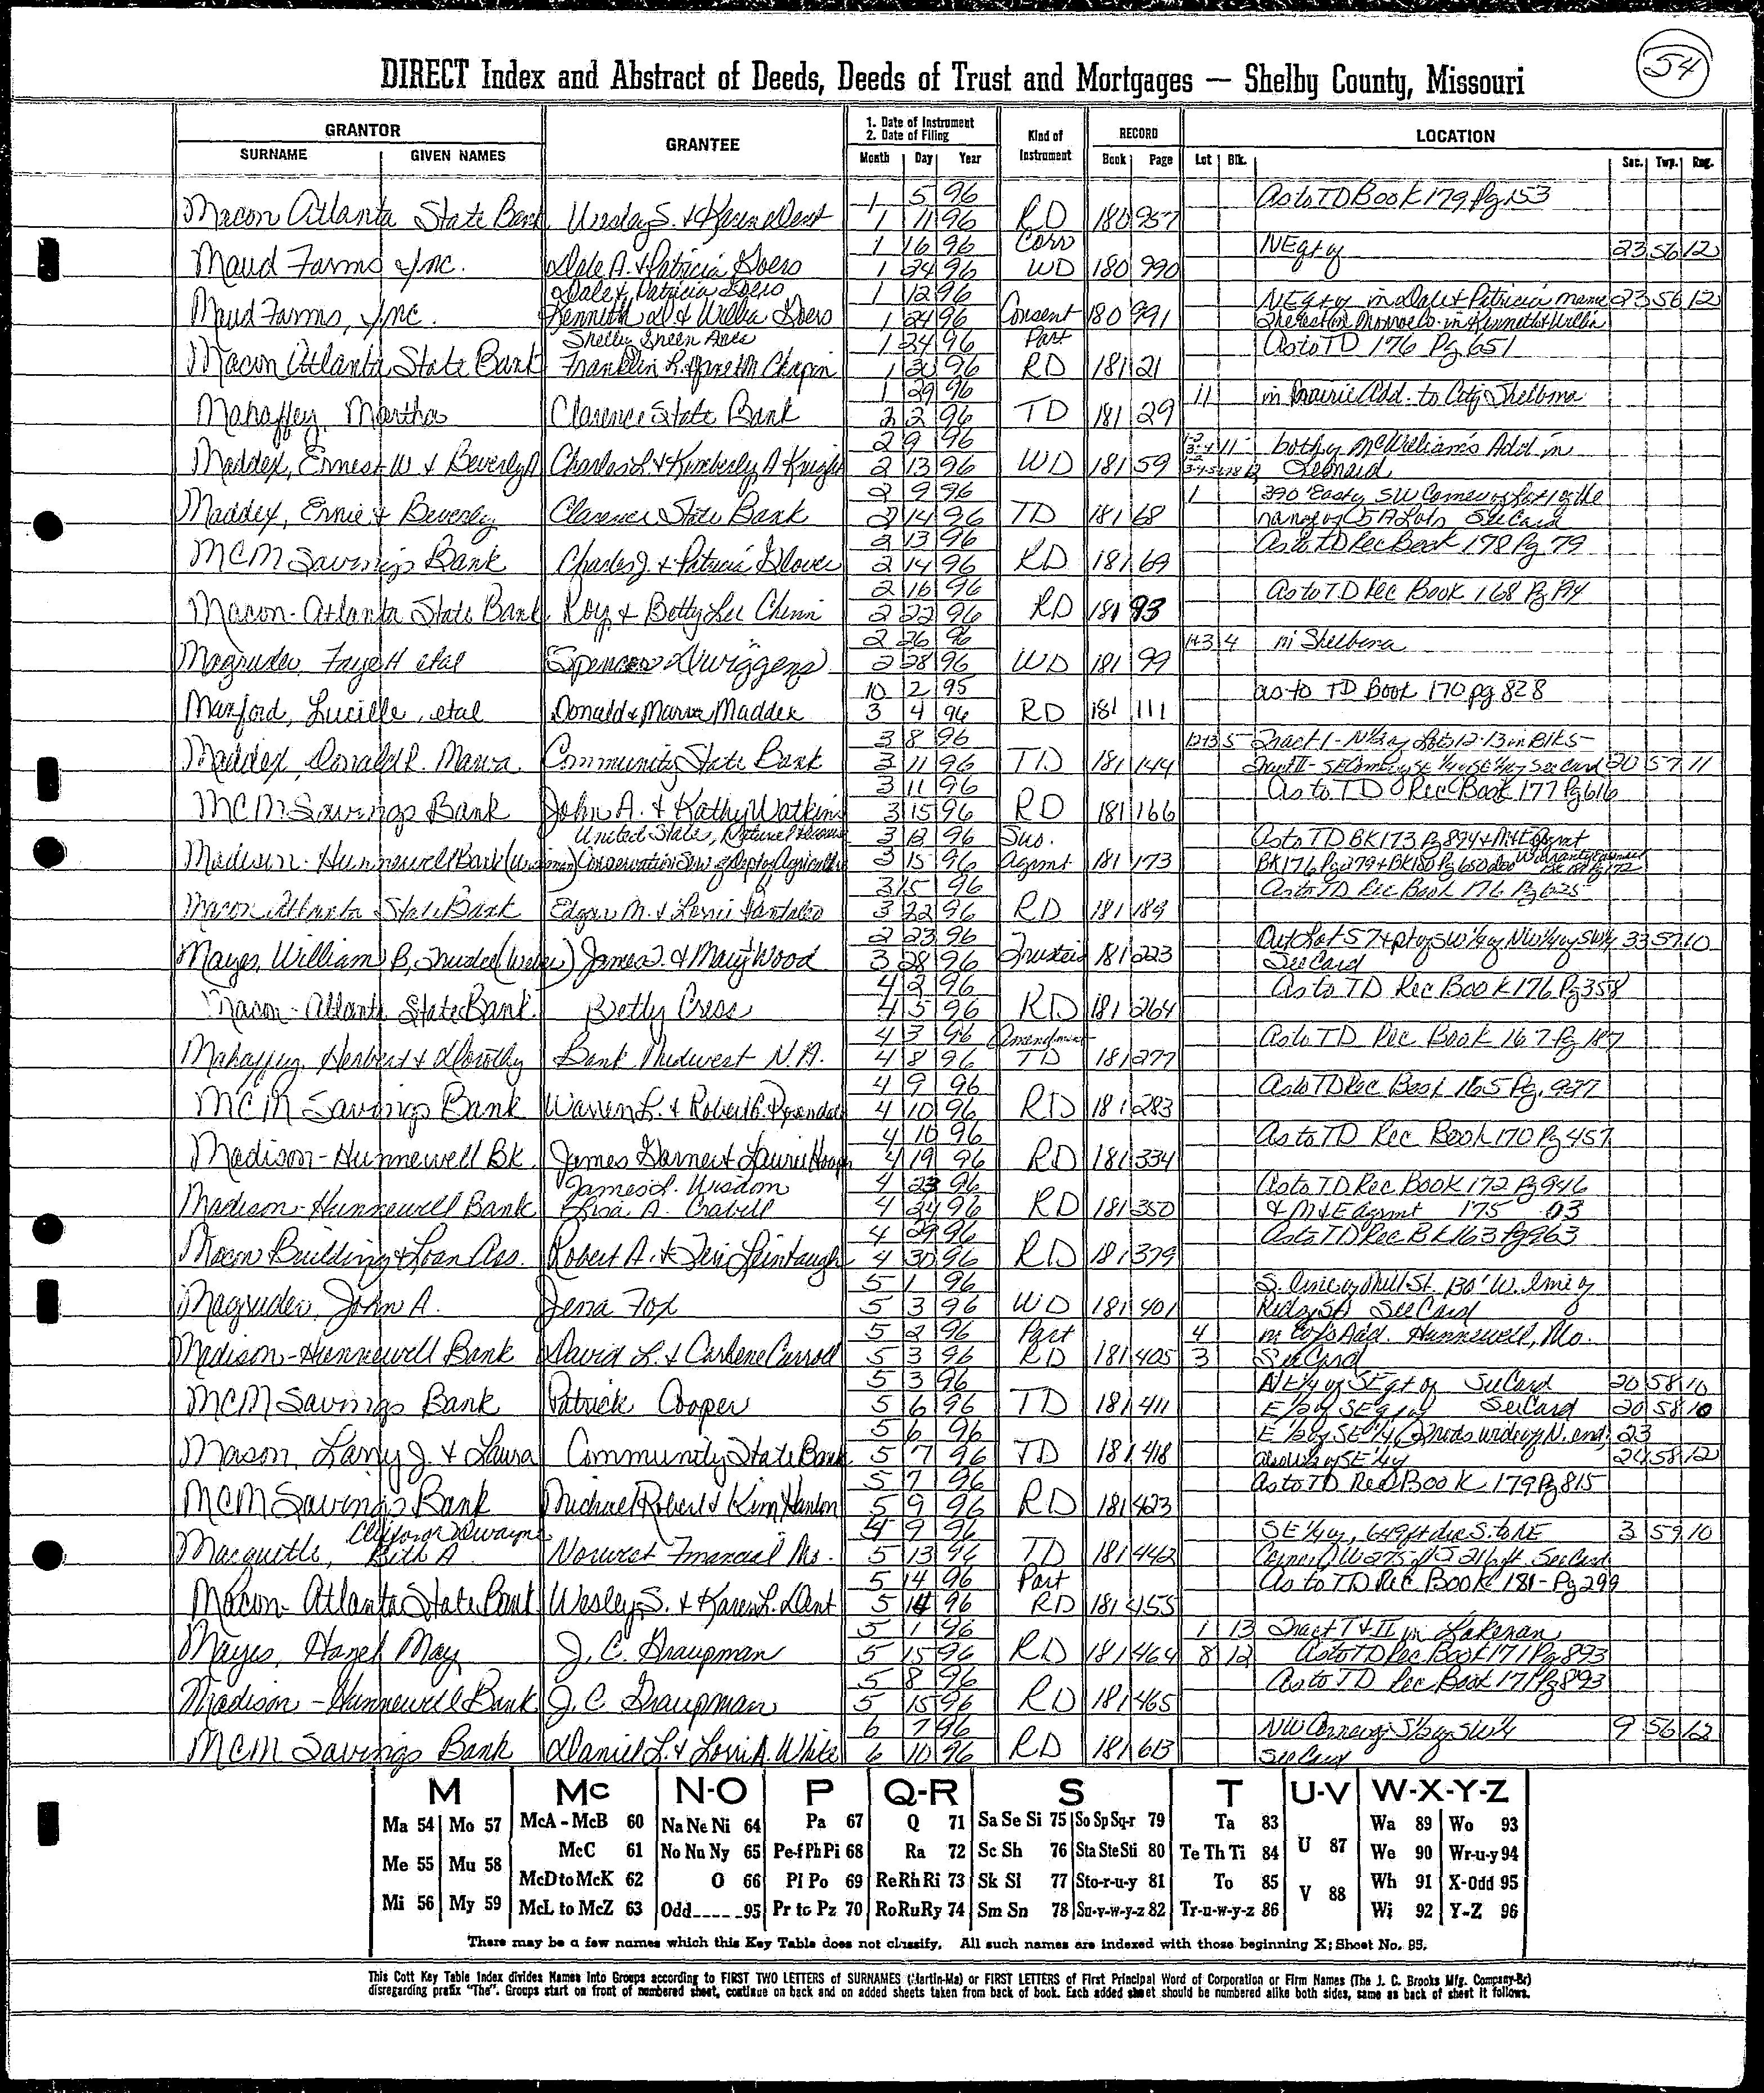 54
DIRECT Index and Abstract of Deeds, Deeds of Trust and Mortgages — Shelby County, Missouri
GRANTOR GRANTEE 1. Date of Instrument 2. Date of Filing Kind of Instrument RECORD LOCATION
SURNAME GIVEN NAMES Month Day Year Book Page Lot Blk. Sec. Twp. Rng.
1 5 96 As to TD Book 179 Pg 153
Macon Atlanta State Bank Wesley S. & Karen Dent 1 11 96 RD 180 957
1 16 96 Corr NE qr of 23 56 12
Maud Farms Inc. Dale A. & Patricia Goers 1 24 96 WD 180 990
Dale & Patricia Goers 1 12 96 NE qr of in Dale & Patricia name 23 56 12
Maud Farms, Inc. Kenneth & Willa Goers 1 24 96 Consent 180 991 The rest in Monroe Co. in Kenneth & Willa
Shelby Green Acres 1 24 96 Part As to TD 176 Pg 651
Macon Atlanta State Bank Franklin L. & Chapin 1 30 96 RD 181 21
1 29 96 11 in Prairie Add. to City Shelbina
Mahaffey, Martha Clarence State Bank 2 2 96 TD 181 29
2 9 96 both of McWilliam's Add in
Maddex, Ernest W & Beverly A Charles L & Kimberly A Knight 2 13 96 WD 181 59 Leonard
2 9 96 1 390' East of SW Corner of Lot 1 of the
Maddex, Ernie & Beverly Clarence State Bank 2 14 96 TD 181 68 range of 5 A Lots See Card
2 13 96 As to TD Rec Book 178 Pg 79
MCM Savings Bank Charles J. & Patricia Glover 2 14 96 RD 181 69
2 16 96 As to TD Rec Book 168 Pg 194
Macon-Atlanta State Bank Roy & Betty Lee Chinn 2 22 96 RD 181 93
2 26 96 4 in Shelbina
Magruder, Faye H etal Spencer Dwiggens 2 28 96 WD 181 99
10 2 95 as to TD Book 170 pg 828
Maxford, Lucille, etal Donald & Marva Maddex 3 4 96 RD 181 111
3 8 96 12 13 5 Tract I - N½ of Lots 12-13 in Blk 5
Maddex, Donald R. Marva Community State Bank 3 11 96 TD 181 144 Tract II - SE Corner of SE ¼ of SE ¼ of See Card 20 57 11
3 11 96 As to TD Rec Book 177 Pg 616
MCM Savings Bank John A. & Kathy Watkins 3 15 96 RD 181 166
United State, Natural Resource 3 13 96 Sub. As to TD BK 173 Pg 894 & M&E Agmnt
Madison-Hunnewell Bank Conservation Serv of Dept of Agriculture 3 15 96 Agmt 181 173 BK 176 Pg 279 & BK 180 Pg 650 Warranty Easement BK 181 Pg 172
3 15 96 As to TD Rec Book 176 Pg 625
Macon Atlanta State Bank Edgar M. & Lorri 3 22 96 RD 181 189
2 23 96 Outlot 57 & pt of SW¼ of NW¼ of SW¼ 33 57 10
Mayes, William B, Trustee James & Mary Wood 3 28 96 Trustee 181 223 See Card
4 2 96 As to TD Rec Book 176 Pg 358
Macon-Atlanta State Bank Betty Cress 4 5 96 RD 181 264
4 3 96 Amendment As to TD Rec Book 167 Pg 187
Mahaffey, Herbert & Dorothy Bank Midwest N.A. 4 8 96 TD 181 277
4 9 96 As to TD Rec Book 165 Pg. 977
MCM Savings Bank Warren L. & 4 10 96 RD 181 283
4 16 96 As to TD Rec Book 170 Pg 457
Madison-Hunnewell Bk James Garnert Laurie 4 19 96 RD 181 334
James L. Wisdom 4 23 96 As to TD Rec Book 172 Pg 946
Madison-Hunnewell Bank A. Crabill 4 24 96 RD 181 350 & M&E Agmnt 175 03
4 29 96 As to TD Rec Bk 163 Pg 963
Macon Building & Loan Ass. Robert A. & Teri 4 30 96 RD 181 379
5 1 96 S. line of Mill St. 130' W. line of
Magruder, John A. Jena Fox 5 3 96 WD 181 401 Ridge St See Card
5 2 96 Part 4 in Cox's Add. Hunnewell, Mo.
Madison-Hunnewell Bank David L. & Carlene Carroll 5 3 96 RD 181 405 3 See Card
5 3 96 NE¼ of SE qr of See Card 20 58 10
MCM Savings Bank Patrick Cooper 5 6 96 TD 181 411 E½ of SE qr of See Card 20 58 10
5 6 96 E ½ of SE ¼ (2 rods wide of N. end) 23
Mason, Larry J. & Laura Community State Bank 5 7 96 TD 181 418 24 58 12
5 7 96 As to TD Rec Book 179 Pg 815
MCM Savings Bank Michael Robert & Kim Hanlon 5 9 96 RD 181 423
Clifford Dwayne 4 9 96 SE ¼ of, 649 ft due S. to NE 3 59 10
Macquette, Rita A Norwest Financial Mo. 5 13 96 TD 181 442 Corner See Card
5 14 96 Part As to TD Rec Book 181-Pg 299
Macon-Atlanta State Bank Wesley S. & Karen L. Dent 5 14 96 RD 181 455
5 1 96 1 13 Tract I & II in Lakenan
Mayes, Hazel May J. C. Graupman 5 15 96 RD 181 464 8 12 As to TD Rec Book 171 Pg 893
5 8 96 As to TD Rec Book 171 Pg 893
Madison-Hunnewell Bank J. C. Graupman 5 15 96 RD 181 465
6 7 96 NW Corner of S½ of SW¼ 9 56 12
MCM Savings Bank Daniel L. & Lorri A. White 6 10 96 RD 181 613 See Card
M Mc N-O P Q-R S T U-V W-X-Y-Z
Ma 54 Mo 57 McA - McB 60 Na Ne Ni 64 Pa 67 Q 71 Sa Se Si 75 So Sp Sq-r 79 Ta 83 U 87 Wa 89 Wo 93
Me 55 Mu 58 McC 61 No Nu Ny 65 Pe-f Ph Pi 68 Ra 72 Sc Sh 76 Sta Ste Sti 80 Te Th Ti 84 We 90 Wr-u-y 94
McD to McK 62 O 66 Pl Po 69 Re Rh Ri 73 Sk Sl 77 Sto-r-u-y 81 To 85 V 88 Wh 91 X-Odd 95
Mi 56 My 59 McL to McZ 63 Odd-----95 Pr to Pz 70 Ro Ru Ry 74 Sm Sn 78 Su-v-w-y-z 82 Tr-u-w-y-z 86 Wi 92 Y-Z 96
There may be a few names which this Key Table does not classify. All such names are indexed with those beginning X; Sheet No. 95.
This Cott Key Table Index divides Names into Groups according to FIRST TWO LETTERS of SURNAMES (Martin-Ma) or FIRST LETTERS of First Principal Word of Corporation or Firm Names (The J. C. Brooks Mfg. Company-Br)
disregarding prefix "The". Groups start on front of numbered sheet, continue on back and on added sheets taken from back of book. Each added sheet should be numbered alike both sides, same as back of sheet it follows.